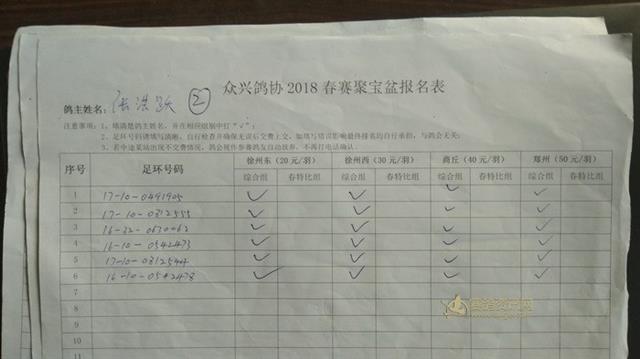 众兴鸽协 2018 春赛聚宝盆报名表
鸽主姓名: 张洪跃 ②
注意事项: 1、填清楚鸽主姓名, 并在相应组别中打"√";
2、足环号码请填写清晰, 自行检查并确保无误后交费上交, 如填写错误影响最终排名的自行承担, 与鸽会无关;
3、若中途某站出现不交费情况, 鸽会视作参赛鸽友自动放弃, 不再打电话确认。
序号 足环号码 徐州东 (20 元/羽) 徐州西 (30 元/羽) 商丘 (40 元/羽) 郑州 (50 元/羽)
综合组 春特比组 综合组 春特比组 综合组 春特比组 综合组 春特比组
1 17-10-0491905 ✓ ✓ ✓ ✓
2 17-10-0312555 ✓ ✓ ✓ ✓
3 16-32-0630062 ✓ ✓ ✓ ✓
4 16-10-0542473 ✓ ✓ ✓ ✓
5 17-10-0312544 ✓ ✓ ✓ ✓
6 16-10-0542478 ✓ ✓ ✓ ✓
7
8
9
10
11